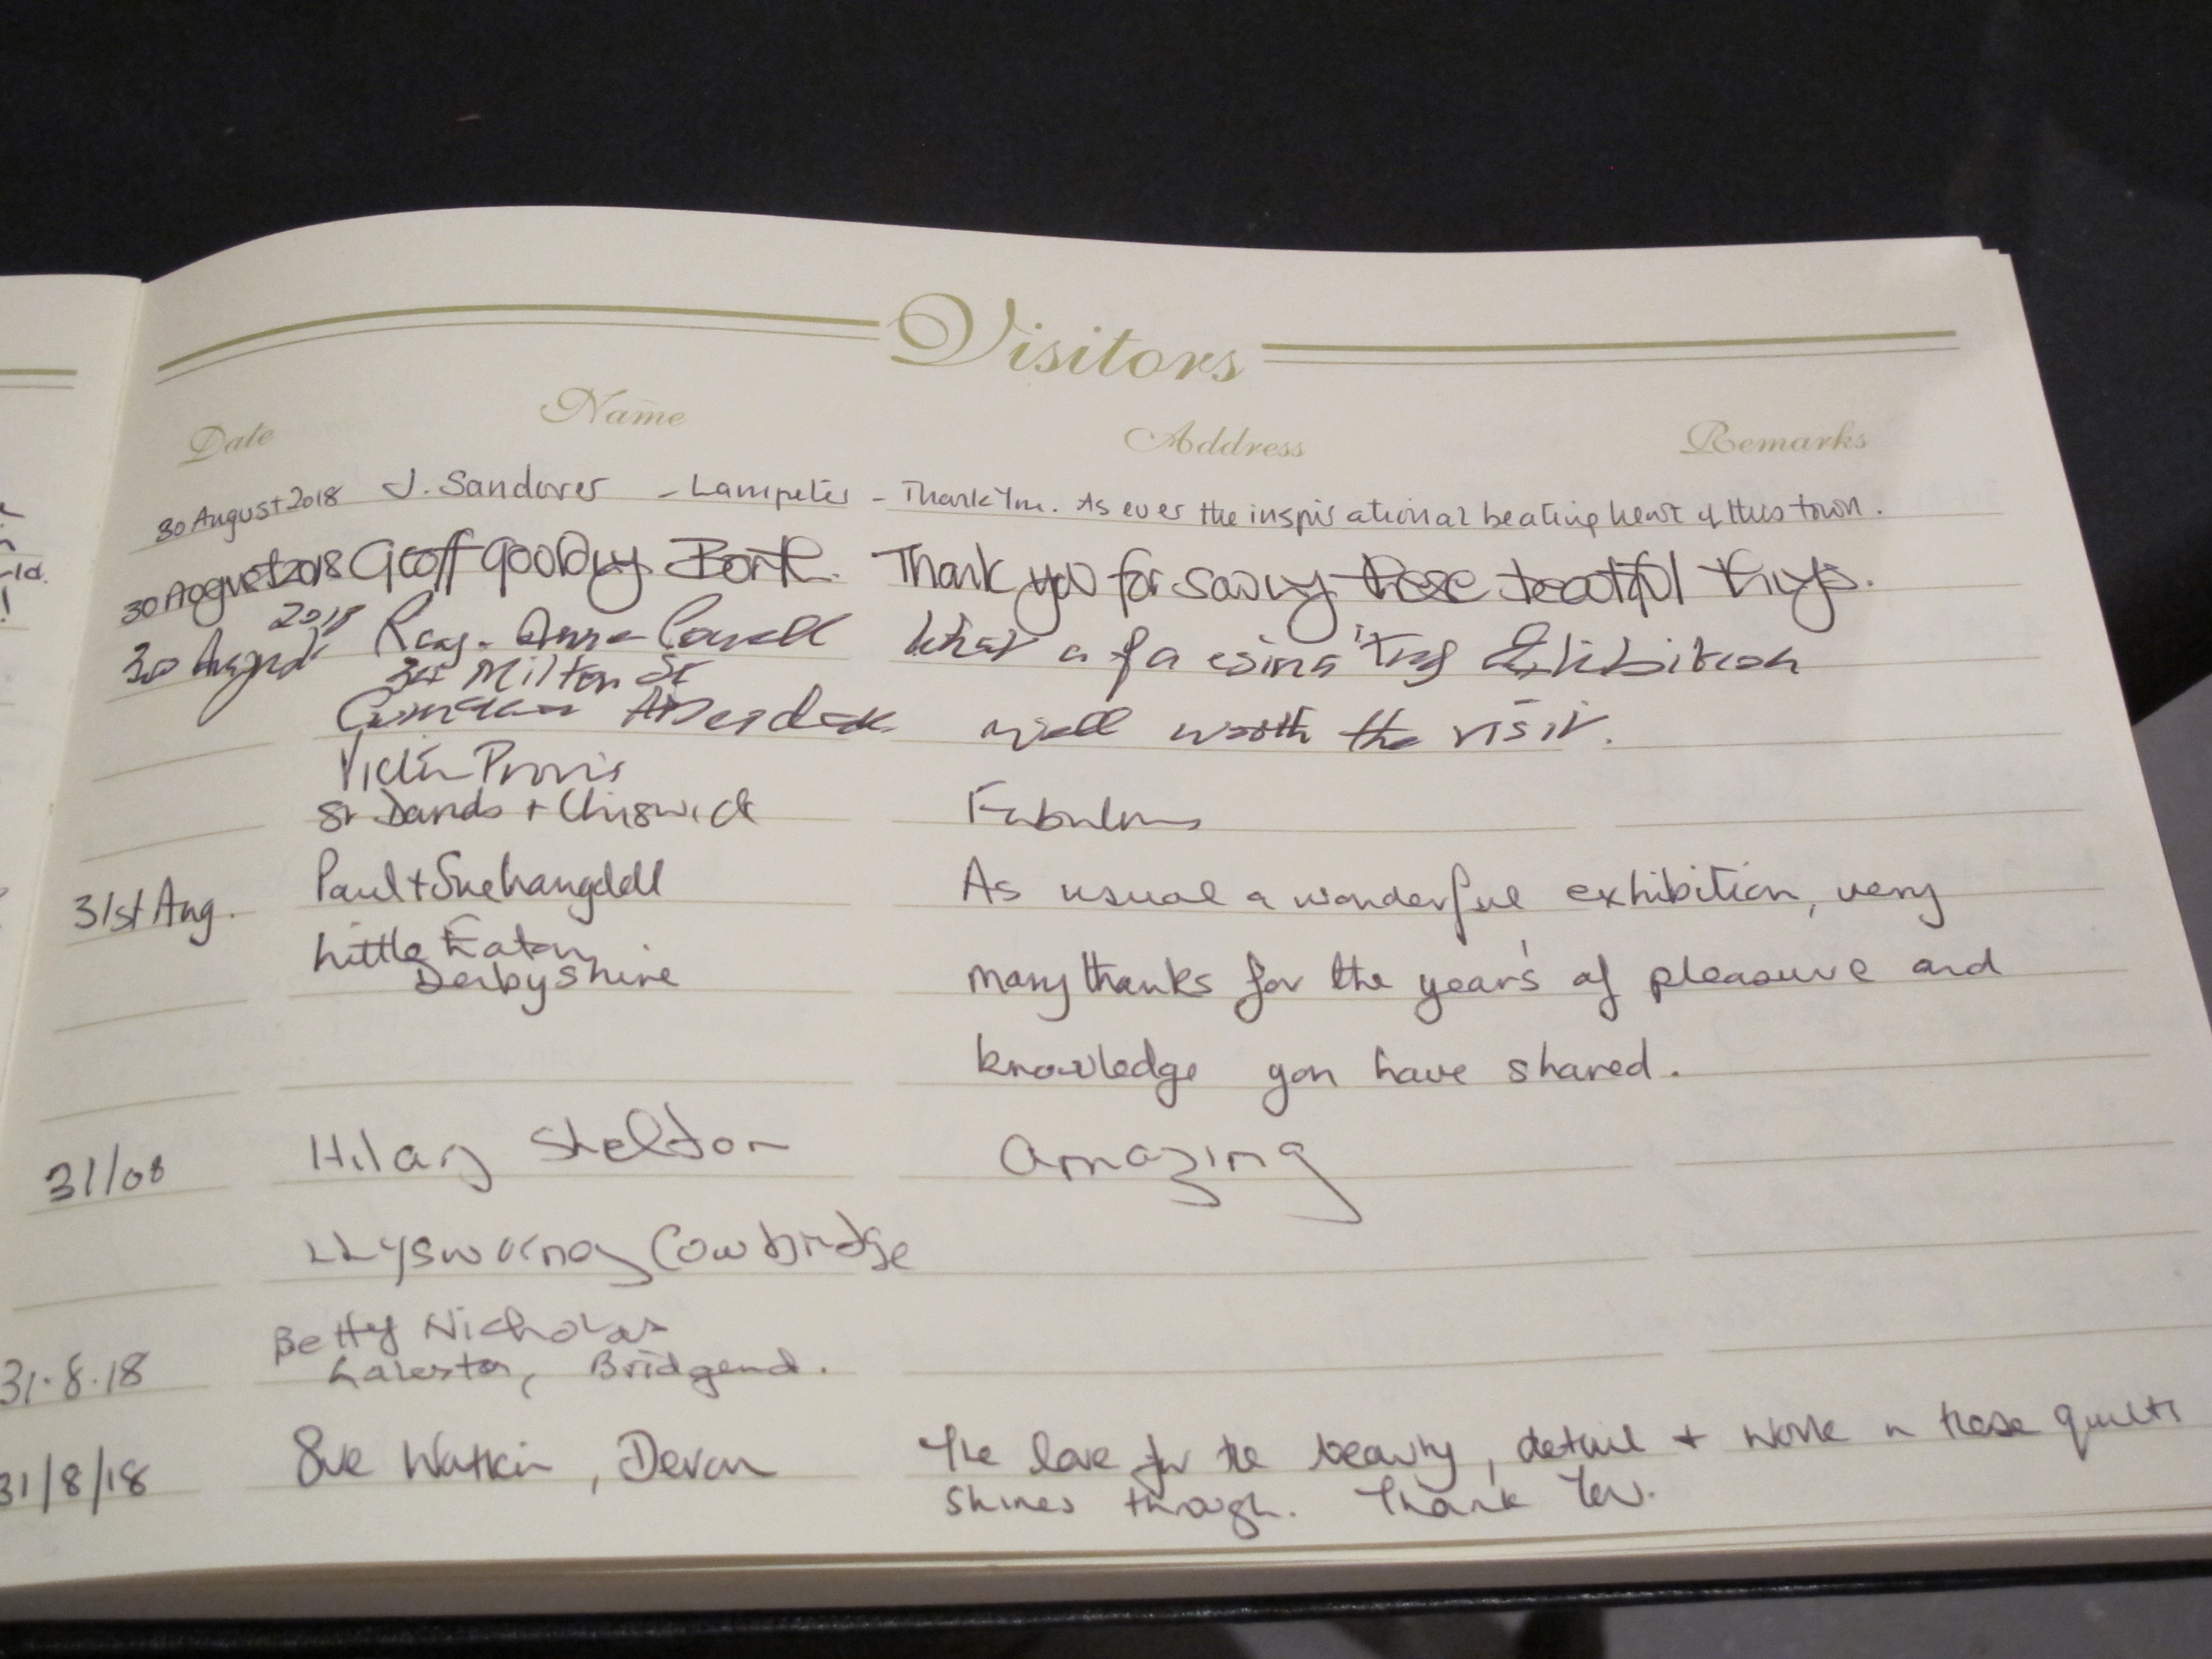 Visitors
Date Name Address Remarks
30 August 2018 J. Sandover - Lampeter - Thank You. As ever the inspirational beating heart of this town.
30 August 2018 Geoff Thank you for saving these beautiful things.
2018
30 August Ray - Anne What a fascinating Exhibition
Milton St
Aberdare well worth the visit.
Provis
St Davids + Chiswick Fabulous
31st Aug. Paul + Sue As usual a wonderful exhibition, very
Little Eaton
Derbyshire many thanks for the year's of pleasure and
knowledge you have shared.
31/08 Hilary Shelton Amazing
Cowbridge
Betty Nicholas
31.8.18 Laleston, Bridgend.
31/8/18 Sue Watkin, Devon The love for the beauty, detail + work in these quilts
shines through. Thank You.